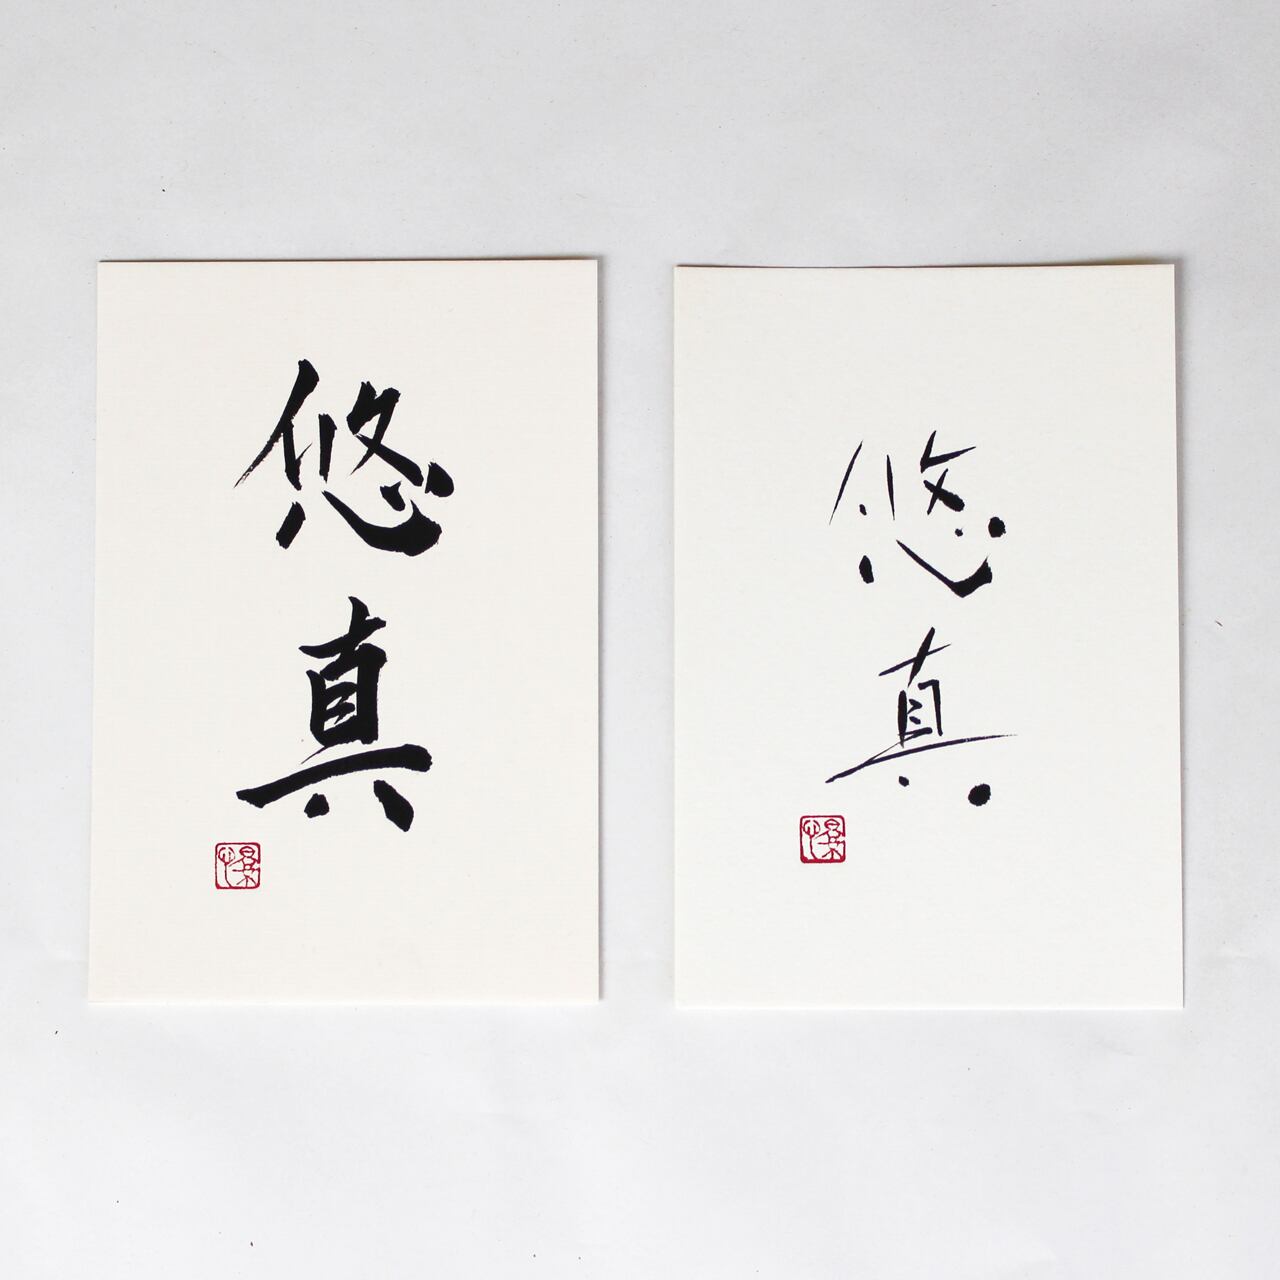 悠真
悠真